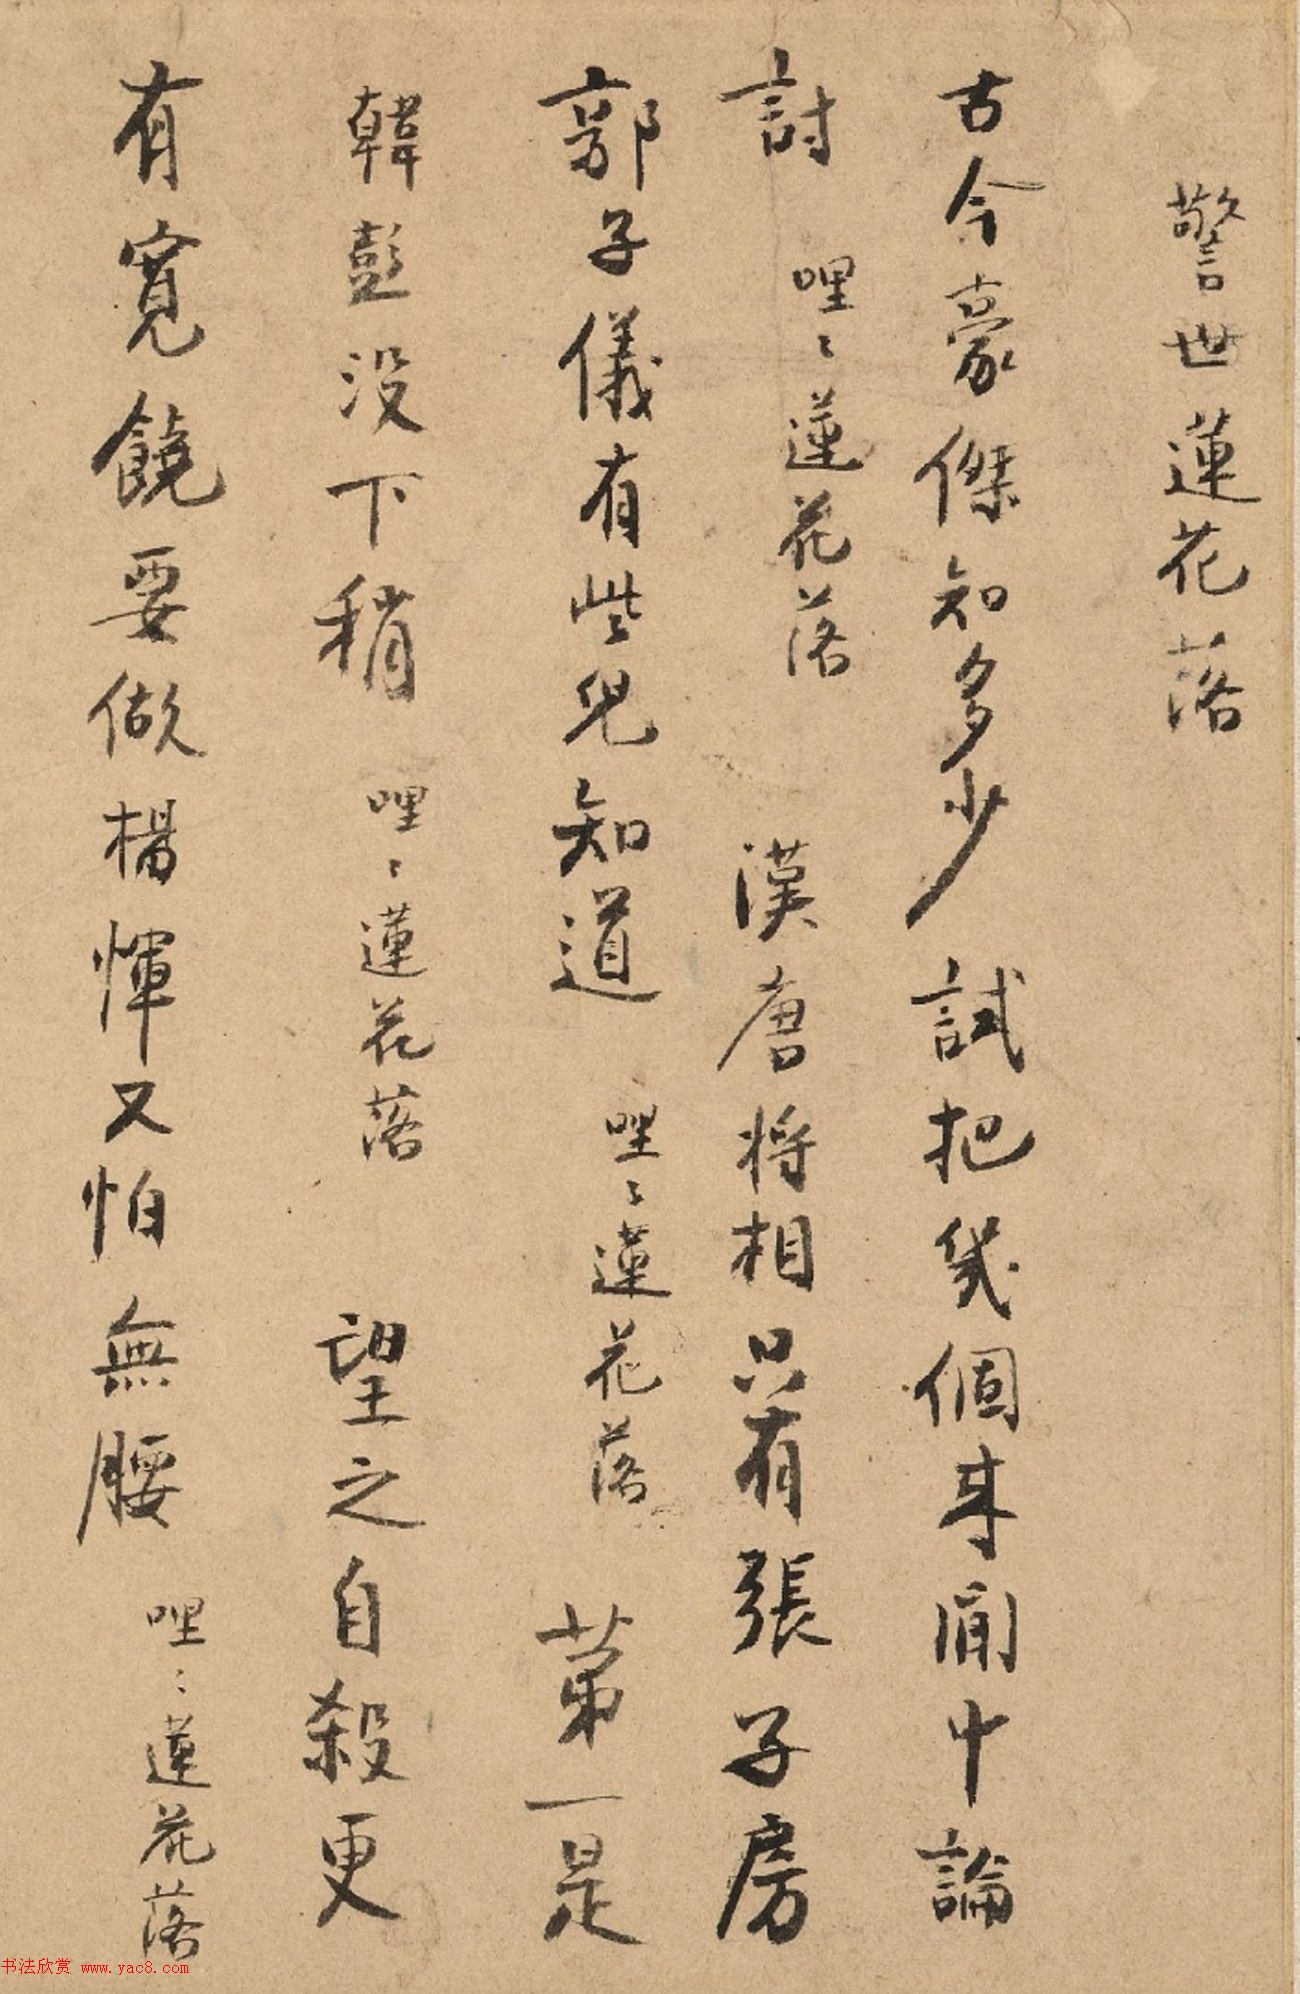 警世蓮花落
古今豪傑知多少試把幾個來閒中論
討哩〻蓮花落漢唐將相只有張子房
郭子儀有些兒知道哩〻蓮花落第一是
韓彭沒下稍哩〻蓮花落望之自殺更
有寬饒要做楊惲又怕無腰哩〻蓮花落
书法欣赏 www.yac8.com